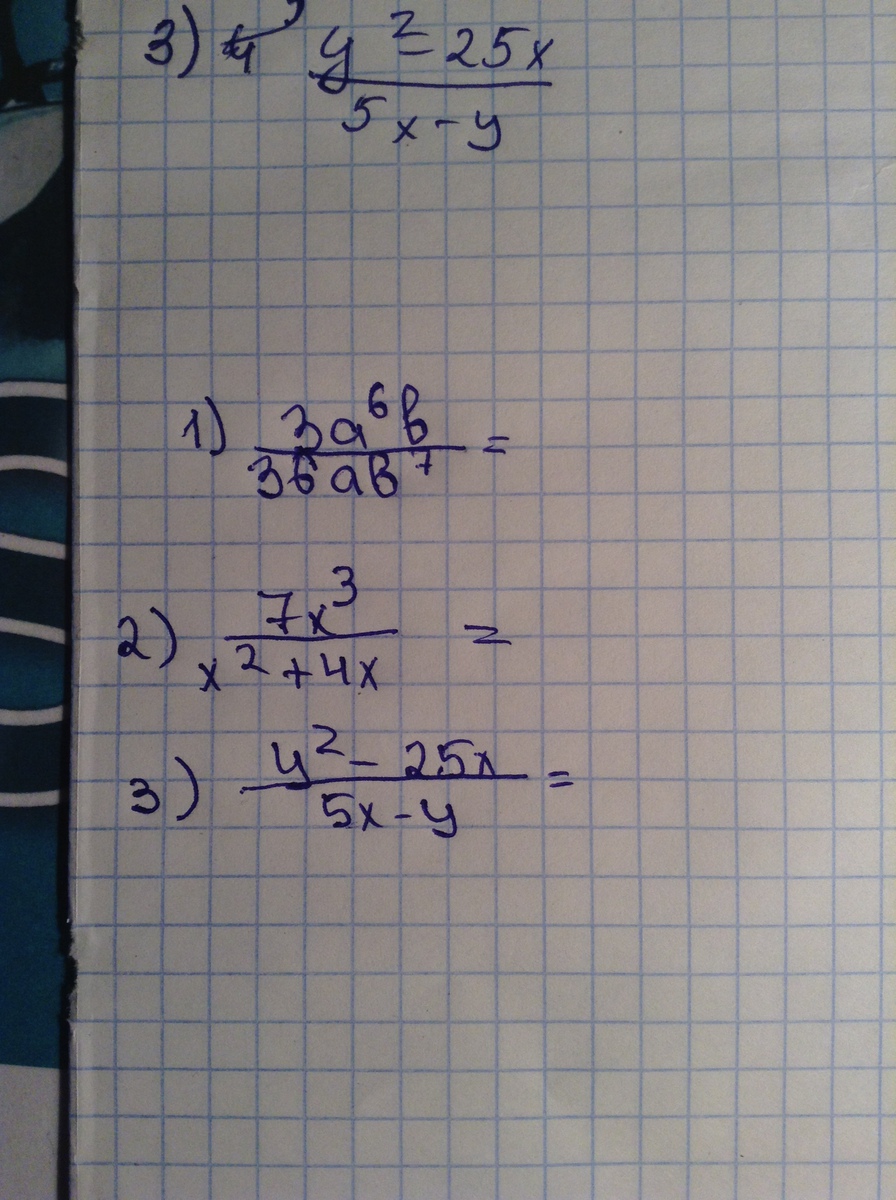 3) y² - 25x
5x - y
1) 3a⁶b =
36ab⁷
2) 7x³ =
x² + 4x
3) y² - 25x =
5x - y